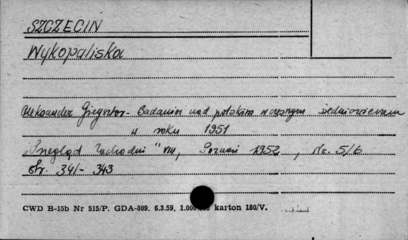 SZCZECIN
Wykopaliska
Aleksander Badania nad średniowiecznym
w roku 1951
"Przegląd Zachodni" VIII, Poznań 1952, Nr. 5/6
Str. 341-343
CWD B-15b Nr 515/P. GDA-809. 6.3.59. 1.000 karton 180/V.